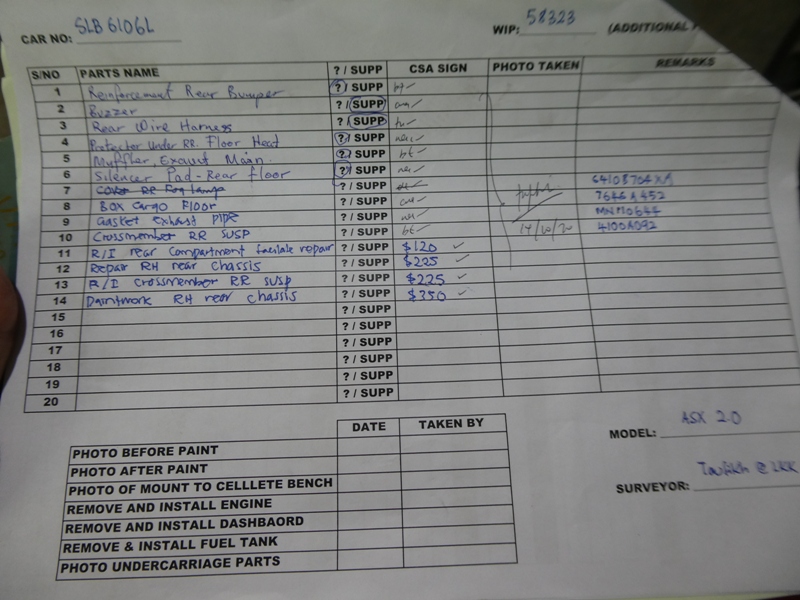 CAR NO: SLB 6106L WIP: 58323 (ADDITIONAL
S/NO PARTS NAME ? / SUPP CSA SIGN PHOTO TAKEN REMARKS
1 Reinforcement Rear Bumper ? / SUPP
2 Buzzer ? / SUPP
3 Rear Wire Harness ? / SUPP
4 Protector Under RR. Floor Heat ? / SUPP
5 Muffler, Exaust Main ? / SUPP
6 Silencer Pad - Rear floor ? / SUPP
7 Cover RR Fog lamp ? / SUPP 6410B704XA
8 Box Cargo Floor ? / SUPP 7646A452
9 Gasket Exhast PIPE ? / SUPP MN110644
10 Crossmember RR SUSP ? / SUPP 17/10/20 4100A092
11 R/I rear Compartment faciliate repair ? / SUPP $120
12 Repair RH rear chassis ? / SUPP $225
13 R/I crossmember RR susp ? / SUPP $225
14 RH rear chassis ? / SUPP $350
15 ? / SUPP
16 ? / SUPP
17 ? / SUPP
18 ? / SUPP
19 ? / SUPP
20 ? / SUPP
DATE TAKEN BY
PHOTO BEFORE PAINT
PHOTO AFTER PAINT
PHOTO OF MOUNT TO CELLLETE BENCH
REMOVE AND INSTALL ENGINE
REMOVE AND INSTALL DASHBAORD
REMOVE & INSTALL FUEL TANK
PHOTO UNDERCARRIAGE PARTS
MODEL: ASX 2.0
SURVEYOR: Taufikh @ LKK